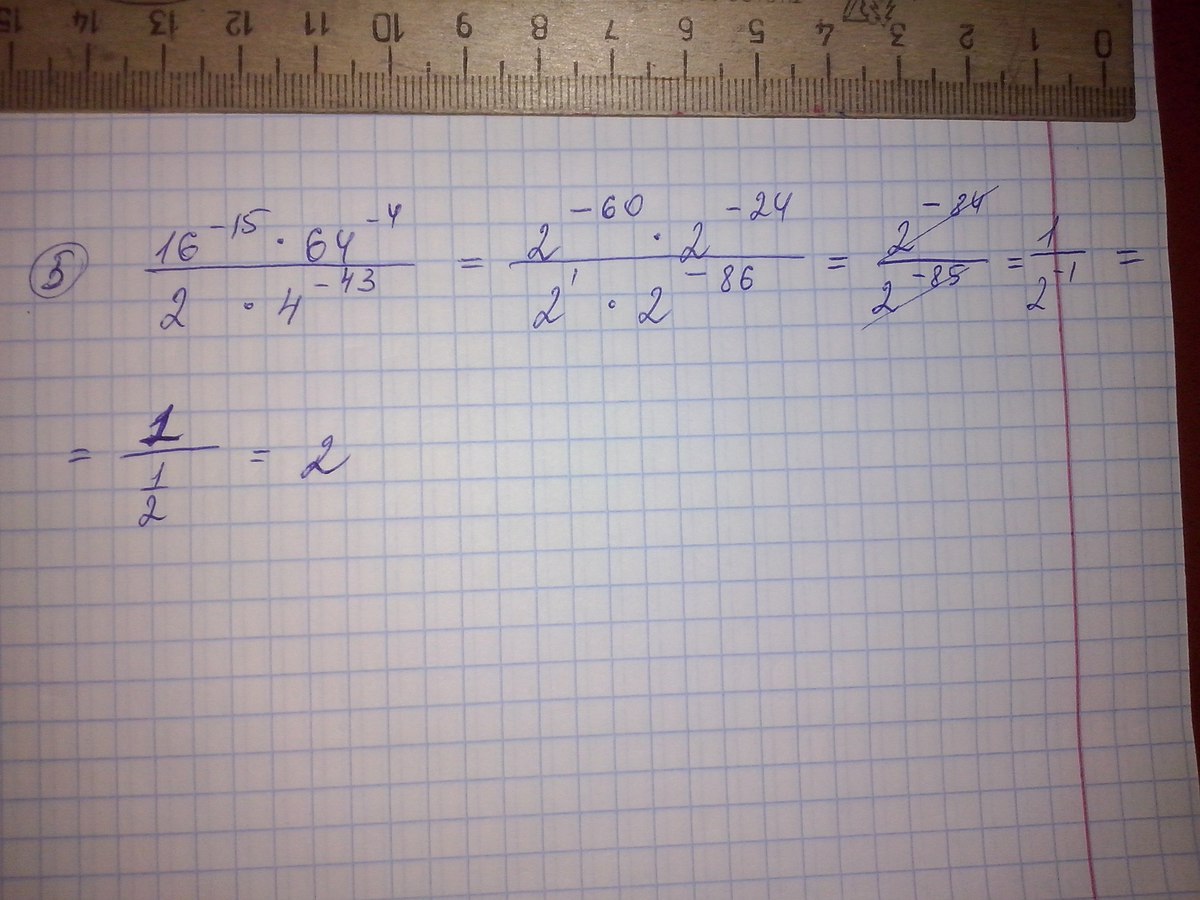 15 14 13 12 11 10 9 8 7 6 5 4 3 2 1 0
5 (16^-15 · 64^-4)/(2 · 4^-43) = (2^-60 · 2^-24)/(2^1 · 2^-86) = 2^-84/2^-85 = 1/2^-1 =
= 1/(1/2) = 2